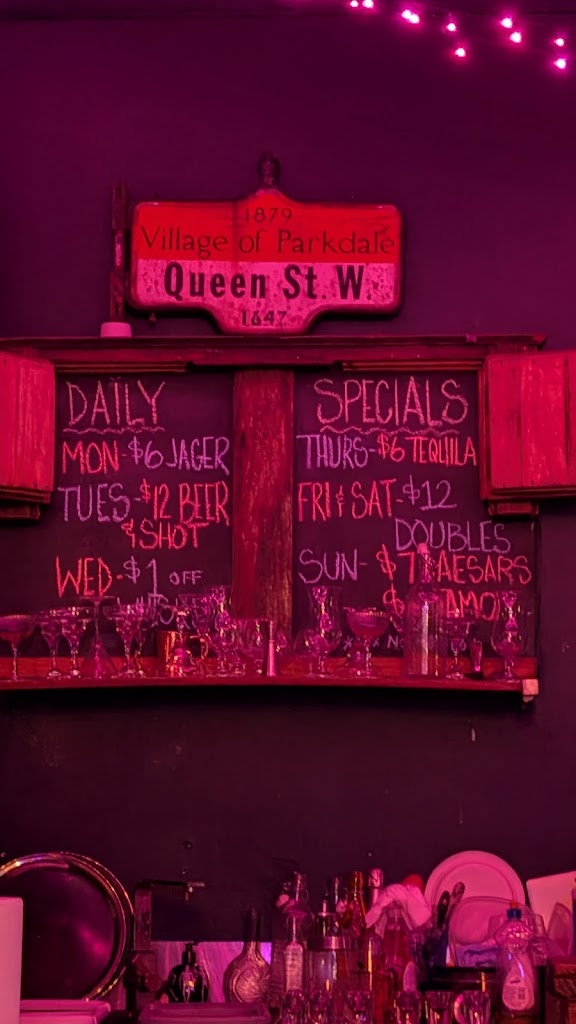 1879
Village of Parkdale
Queen St. W.
1647
DAILY
MON-$6 JAGER
TUES-$12 BEER
& SHOT
WED-$1 OFF
SPECIALS
THURS-$6 TEQUILA
FRI & SAT-$12
DOUBLES
SUN-$7